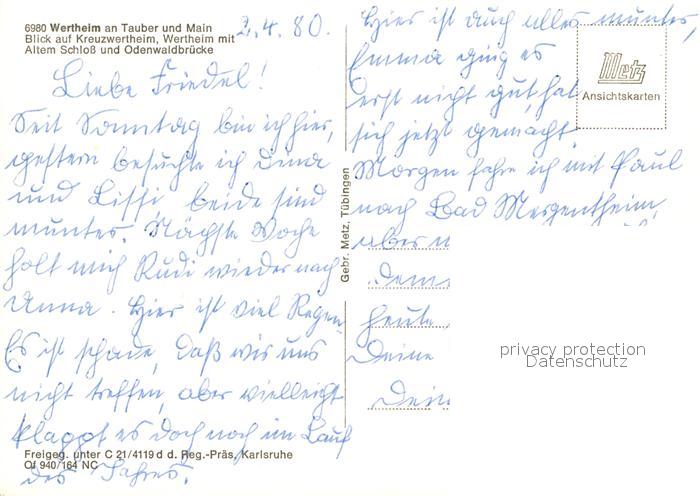 6980 Wertheim an Tauber und Main
Blick auf Kreuzwertheim, Wertheim mit
Altem Schloß und Odenwaldbrücke
2.4.80.
Liebe Friedel!
Seit Sonntag bin ich hier,
gestern besuchte ich
und Lissi beide sind
munter. Nächste Woche
holt mich Rudi wieder nach
Anna. Hier ist viel Regen
Es ist schade, daß wir uns
nicht treffen, aber vielleicht
klappt es doch noch im Lauf
des Jahres.
Freigeg. unter C 21/4119 d d. Reg.-Präs. Karlsruhe
Of 940/164 NC
Gebr. Metz, Tübingen
Hier ist auch alles munter,
Emma ging es
erst nicht gut, hat
sich jetzt gemacht.
Morgen fahre ich mit Paul
nach Bad Mergentheim,
aber
heute
Deine
Metz
Ansichtskarten
privacy protection
Datenschutz